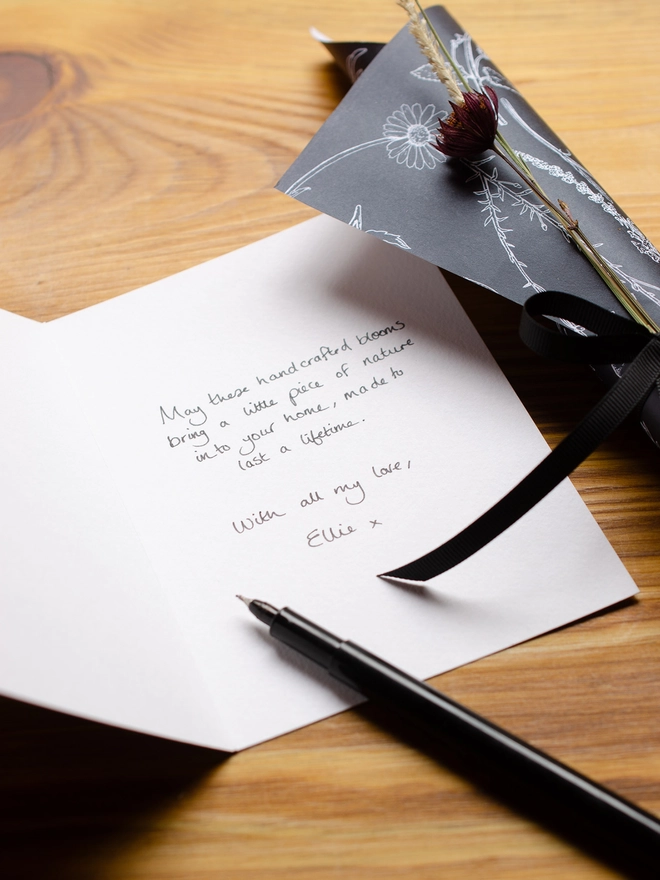 May these handcrafted blooms
bring a little piece of nature
into your home, made to
last a lifetime.
With all my love,
Ellie x